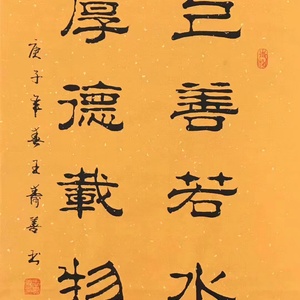 上善若水
厚德載物
庚子年春王寿善书